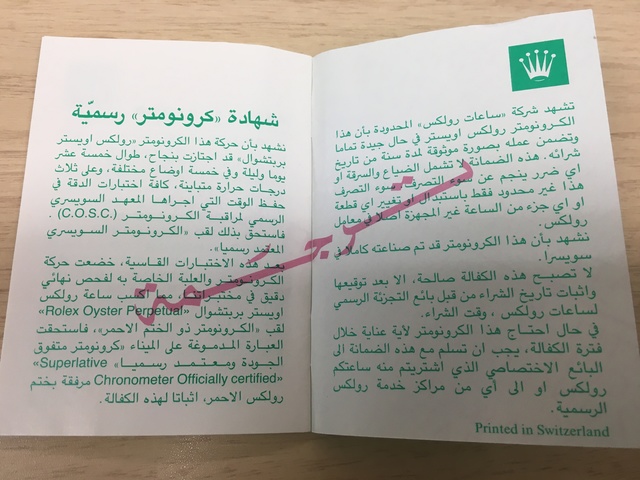 تشهد شركة «ساعات رولكس» المحدودة بأن هذا
الكرونومتر رولكس اويستر في حال جيدة تماما
وتضمن عمله بصورة موثوقة لدة سنة من تاريخ
شرائه. هذه الضمانة لا تشمل الضياع والسرقة او
اي ضرر ينجم عن سوء التصرف. سوء التصرف
هذا غير محدود فقط باستبدال او تغيير اي قطعة
او اي جزء من الساعة غير المجهزة أصلا في معامل
رولكس.
نشهد بأن هذا الكرونومتر قد تم صناعته كاملا في
سويسرا.
لا تصبح هذه الكفالة صالحة، الا بعد توقيعها
واثبات تاريخ الشراء من قبل بائع التجزئة الرسمي
لساعات رولكس ، وقت الشراء.
في حال احتاج هذا الكرونومتر لأية عناية خلال
فترة الكفالة، يجب ان تسلم مع هذه الضمانة الى
البائع الاختصاصي الذي اشتريتم منه ساعتكم
رولكس او الى أي من مراكز خدمة رولكس
الرسمية.
Printed in Switzerland
شهادة «كرونومتر» رسميّة
نشهد بأن حركة هذا الكرونومتر «رولكس اويستر
بربتشوال» قد اجتازت بنجاح، طوال خمسة عشر
يوما وليلة وفي خمسة اوضاع مختلفة، وعلى ثلاث
درجات حرارة متباينة، كافة اختبارات الدقة في
حفظ الوقت التي اجراها المعهد السويسري
الرسمي لمراقبة الكرونومتر (C.O.S.C.) .
فاستحق بذلك لقب «الكرونومتر السويسري
المعتمد رسميا».
بعد هذه الاختبارات القاسية، خضعت حركة
الكرونومتر والعلبة الخاصة به لفحص نهائي
دقيق في مختبراتنا، مما اكسب ساعة رولكس
اويستر بربتشوال «Rolex Oyster Perpetual»
لقب «الكرونومتر ذو الختم الاحمر»، فاستحقت
العبارة المدموغة على الميناء «كرونومتر متفوق
الجودة ومعتمد رسميا» «Superlative
Chronometer Officially certified» مرفقة بختم
رولكس الاحمر، اثباتا لهذه الكفالة.